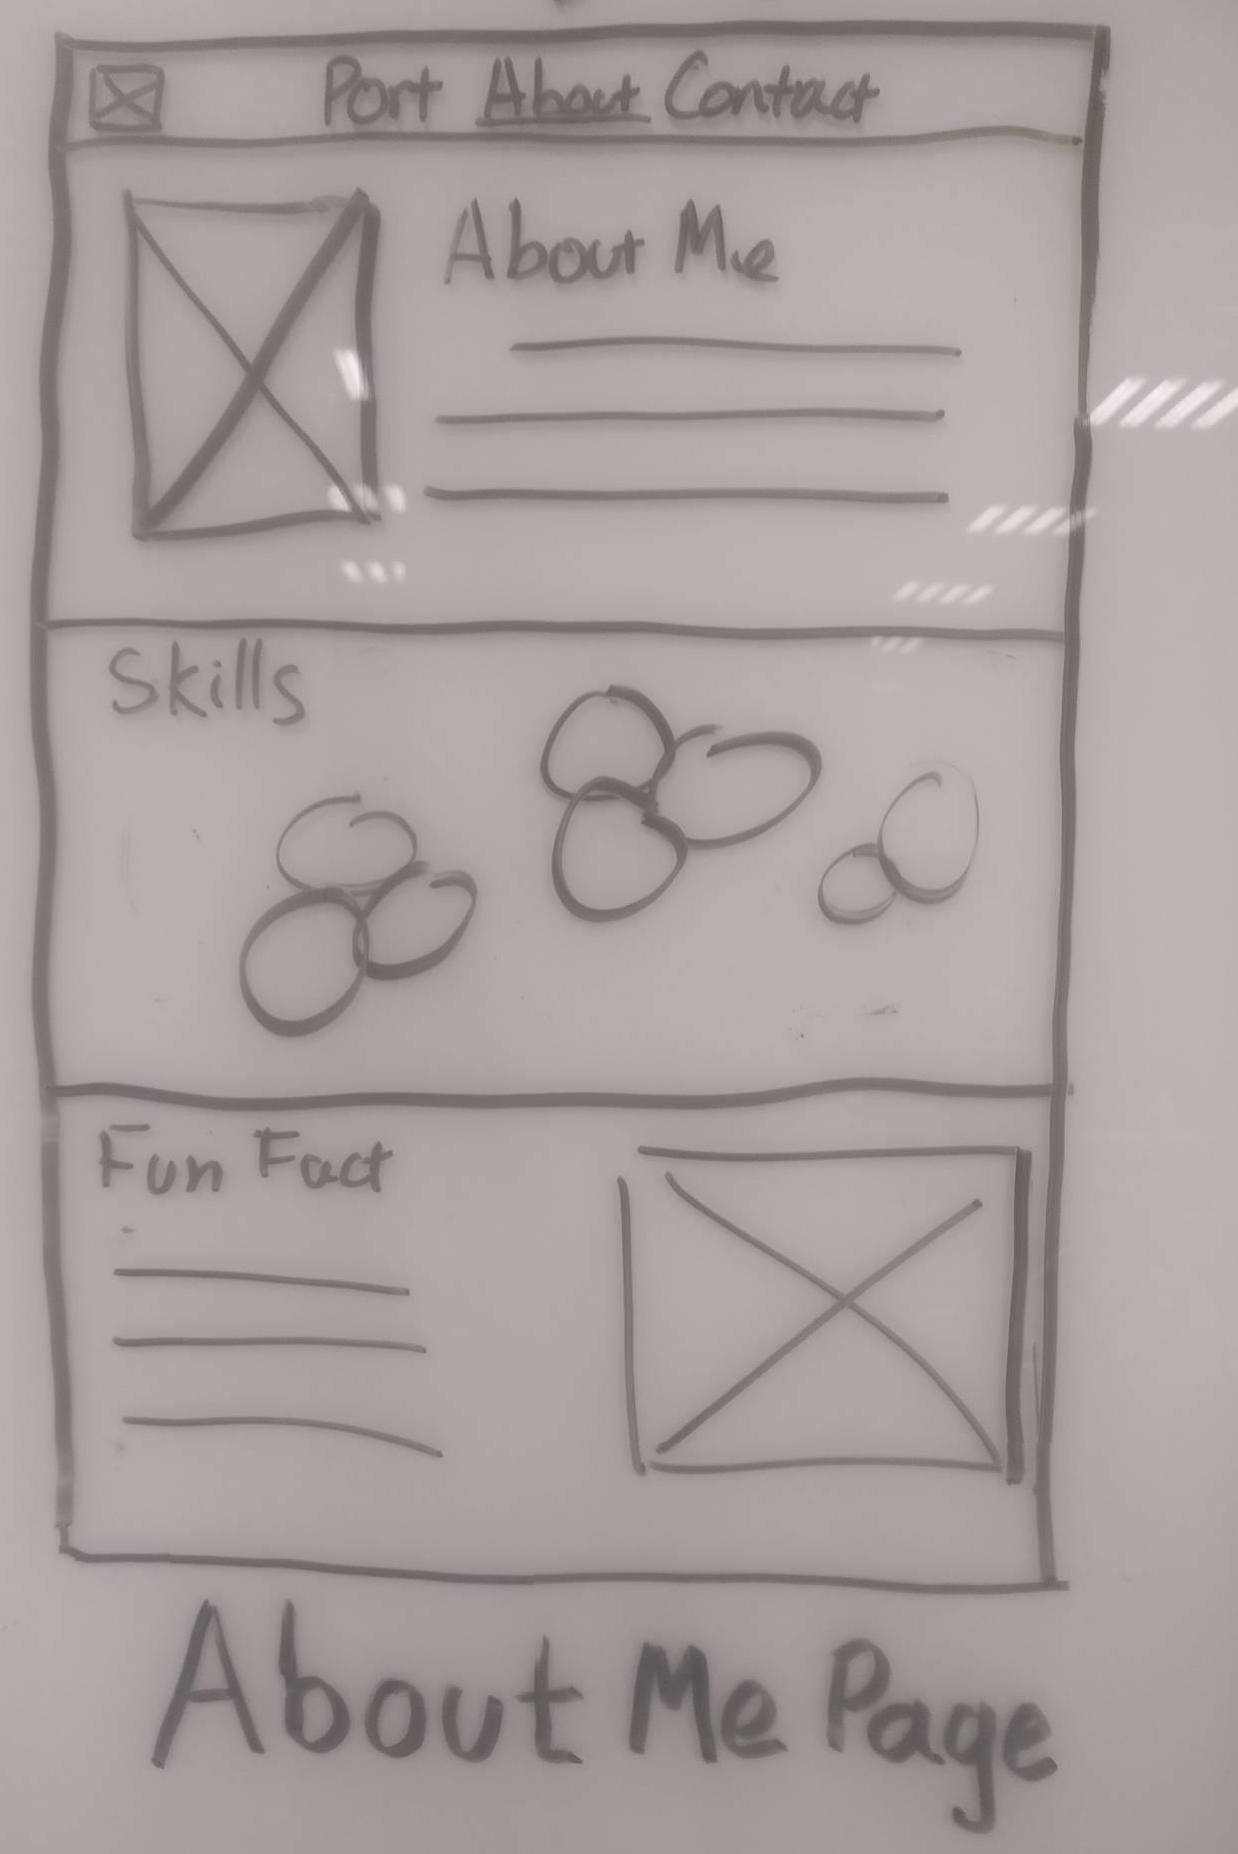 Port About Contact
About Me
Skills
Fun Fact
About Me Page